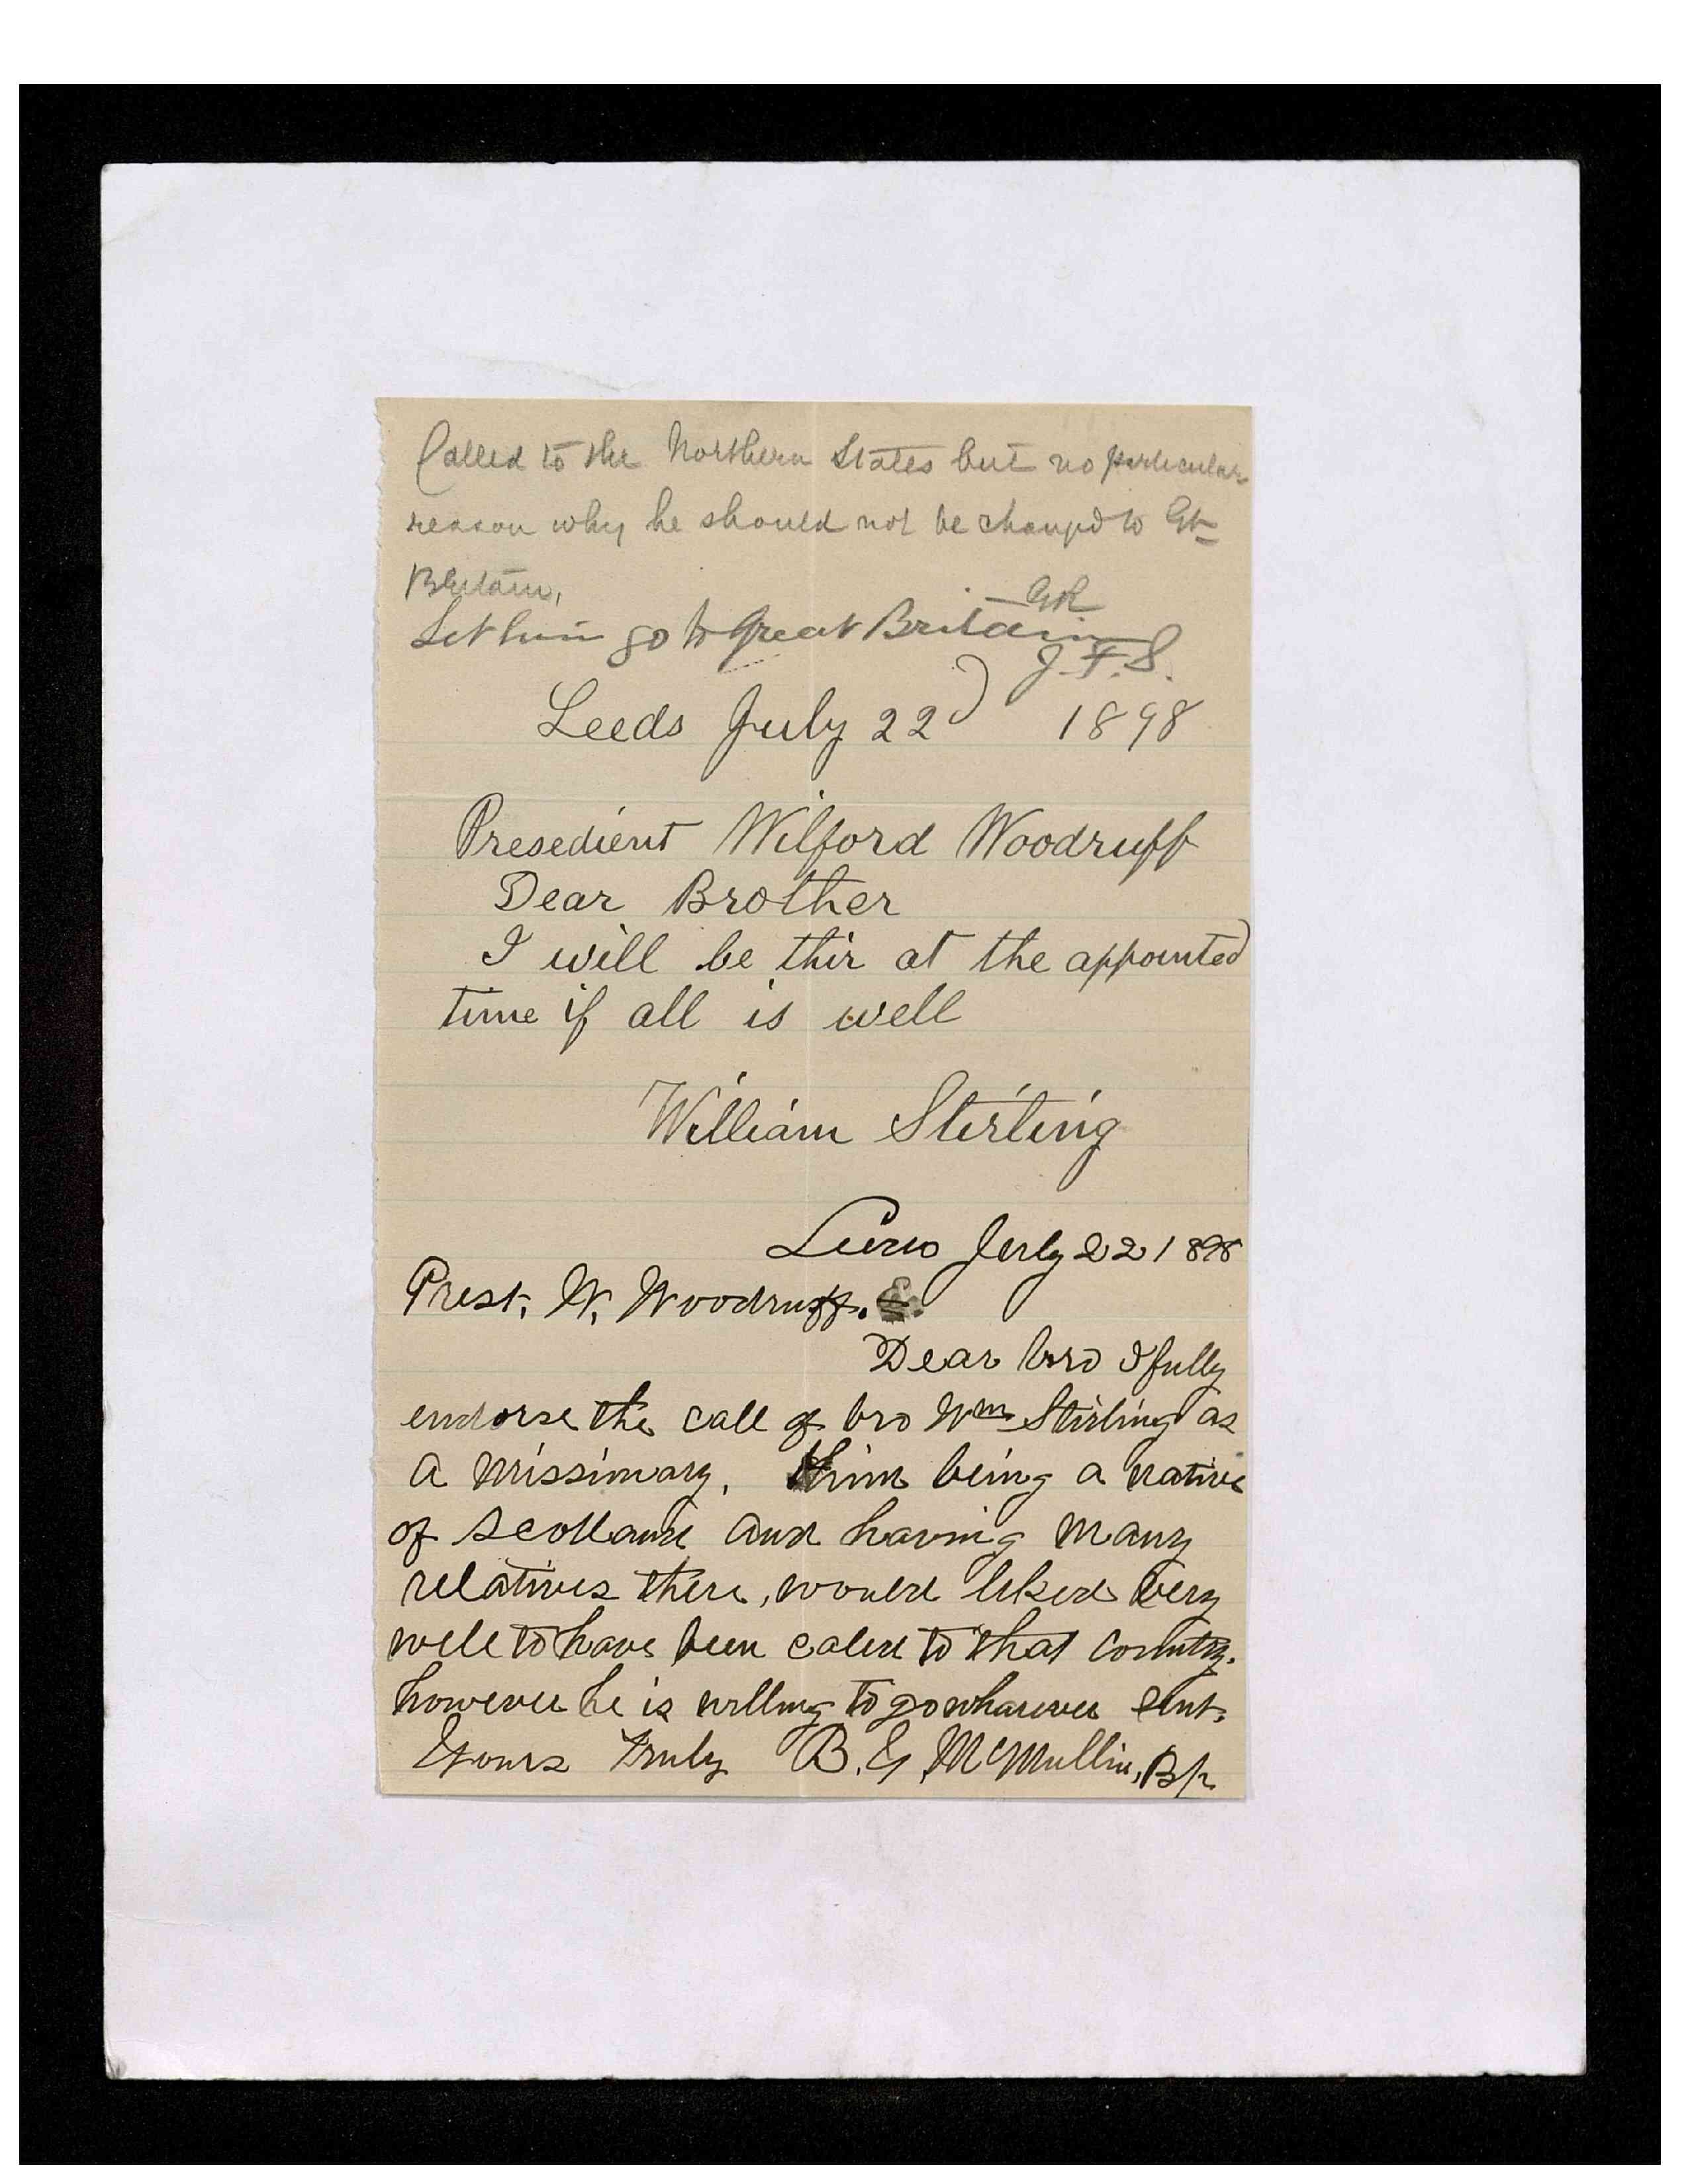 Called to the Northern States but no particular
reason why he should not be changed to Gt
Britain,
GR
Let him go to Great Britain
J. F. S.
Leeds July 22d 1898
Presedient Wilford Woodruff
Dear Brother
I will be thir at the appointed
time if all is well
William Stirling
Leeds July 22 1898
Prest. W. Woodruff.
Dear bro I fully
endorse the call of bro Wm Stirling as
a missionary, him being a native
of Scotland and having many
relatives there, would liked very
well to have been caled to that country.
however he is willing to go wharever sent.
Yours Truly B. Y. McMullin, Bp.